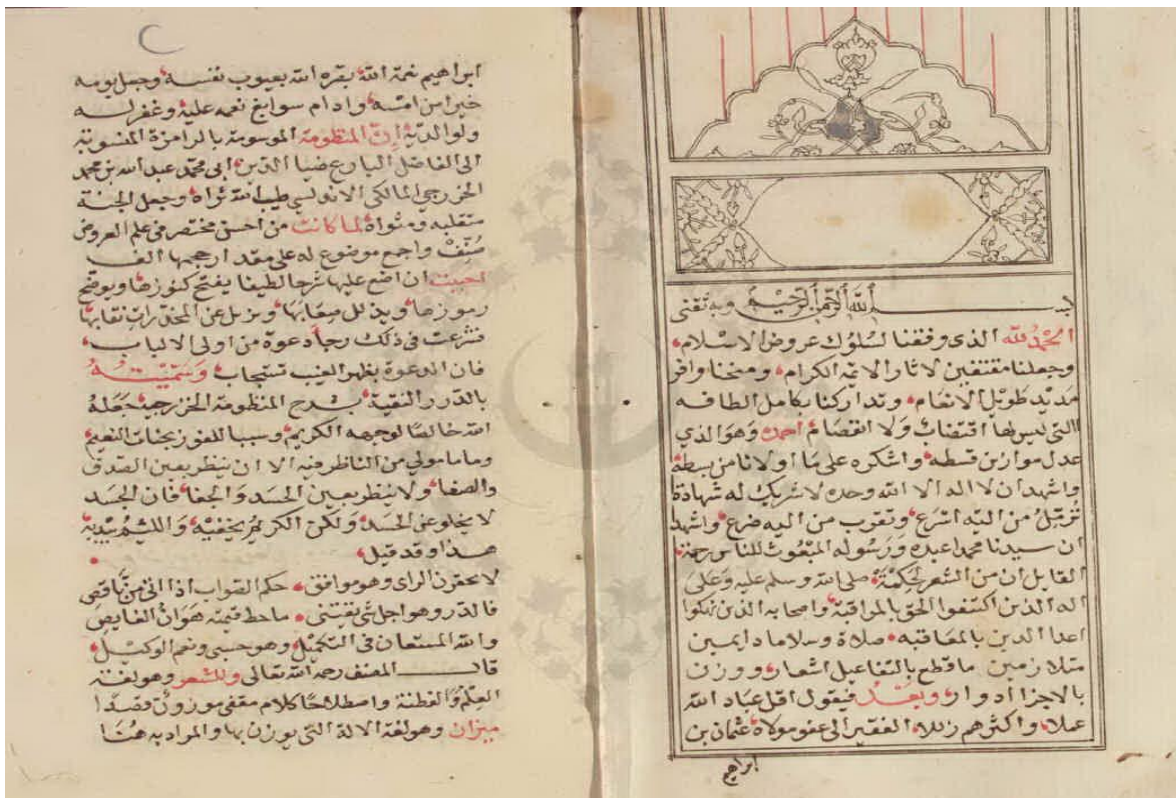 بسم الله الرحمن الرحيم وبه ثقتى
الحمد لله الذى وفقنا لسلوك عروض الاسلام،
وجعلنا مقتفين لاثار الايمة الكرام، ومنحنا وافر
مديد طويل الانعام، وتداركنا بكامل الطافه
التى ليس لها اقتضاب ولا انفصام احمده وهو الذي
عدل موازين قسطه، واشكره على ما اولانا من بسطه
واشهد ان لا اله الا الله وحده لا شريك له شهادة
من اليه اسرع، وتقرب من اليه ضرع، واشهد
ان سيدنا محمدا عبده ورسوله المبعوث للناس رحمة،
القايل ان من الشعر لحكمة، صلى الله وسلم عليه وعلى
اله الذين اكتنفوا الحق بالمراقبة، واصحابه الذين نهكوا
اعدا الدين بالمعاقبه، صلاة وسلاما دايمين
متلازمين ما قطع بالتفاعيل اشعار، ووزن
بالاجزا ادوار، وبعد فيقول اقل عباد الله
عملا، واكثرهم زللا، الفقير الى عفو مولاه، عثمان بن
ابراهيم
ابراهيم نعمة الله، بصره الله بعيوب نفسه، وجعل يومه
خيرا من امسه، وادام سوابغ نعمه عليه، وغفر له
ولوالديه، ان المنظومة الموسومة بالرامزة المنسوبة
الى الفاضل البارع ضيا الدين، ابى محمد عبد الله بن محمد
الخزرجي المالكى الاندلسي طيب الله ثراه، وجعل الجنة
متقلبه ومثواه، لما كانت من احسن مختصر فى علم العروض
صنف، واجمع موضوع له على مقدار حجمها الف
احببت ان اضع عليها شرحا لطيفا يفتح كنوزها، ويوضح
رموزها، ويذلل صعابها، ويزيل عن المخدرات نقابها،
فشرعت فى ذلك رجا دعوة من اولى الالباب،
فان الدعوة بظهر الغيب تستجاب، وسميته
بالدرر النقية، بشرح المنظومة الخزرجية، جعله
الله خالصا لوجهه الكريم، وسببا للفوز بجنات النعيم،
وما مامولي من الناظر فيه الا ان ينظر بعين الصدق
والصفا، ولا ينظر بعين الحسد والجفا، فان الجسد
لا يخلو عن الحسد، ولكن الكريم يخفيه، واللئيم يبديه
هذا وقد قيل،
لا تحقرن الراى وهو موافق، حكم الصواب اذا اتى من ناقص
فالدر وهو اجل شئ يقتنى، ما حط قيمته هوان الغايص
والله المستعان فى التكميل، وهو حسبى ونعم الوكيل،
قال المصنف رحمه الله تعالى وللشعر وهو لغة
العلم والفطنة، واصطلاحا كلام مقفى موزون قصدا
ميزان وهو لغة الالة التى يوزن بها والمراد به هنا